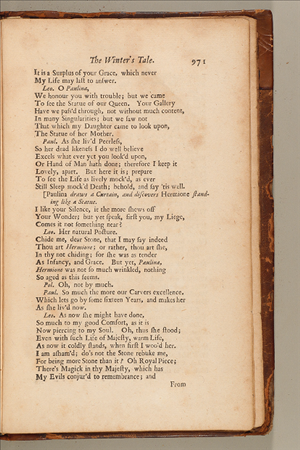 The Winter's Tale. 971
It is a Surplus of your Grace, which never
My Life may last to answer.
Leo. O Paulina,
We honour you with trouble; but we came
To see the Statue of our Queen. Your Gallery
Have we pass'd through, not without much content,
In many Singularities; but we saw not
That which my Daughter came to look upon,
The Statue of her Mother.
Paul. As she liv'd Peerless,
So her dead likeness I do well believe
Excels what ever yet you look'd upon,
Or Hand of Man hath done; therefore I keep it
Lovely, apart. But here it is; prepare
To see the Life as lively mock'd, as ever
Still Sleep mock'd Death; behold, and say 'tis well.
[Paulina draws a Curtain, and discovers Hermione stand-
ing like a Statue.
I like your Silence, it the more shews off
Your Wonder; but yet speak, first you, my Liege,
Comes it not something near?
Leo. Her natural Posture.
Chide me, dear Stone, that I may say indeed
Thou art Hermione; or rather, thou art she,
In thy not chiding; for she was as tender
As Infancy, and Grace. But yet, Paulina,
Hermione was not so much wrinkled, nothing
So aged as this seems.
Pol. Oh, not by much.
Paul. So much the more our Carvers excellence,
Which lets go by some sixteen Years, and makes her
As she liv'd now.
Leo. As now she might have done,
So much to my good Comfort, as it is
Now piercing to my Soul. Oh, thus she stood;
Even with such Life of Majesty, warm Life,
As now it coldly stands, when first I woo'd her.
I am asham'd; do's not the Stone rebuke me,
For being more Stone than it? Oh Royal Piece;
There's Magick in thy Majesty, which has
My Evils conjur'd to remembrance; and
From